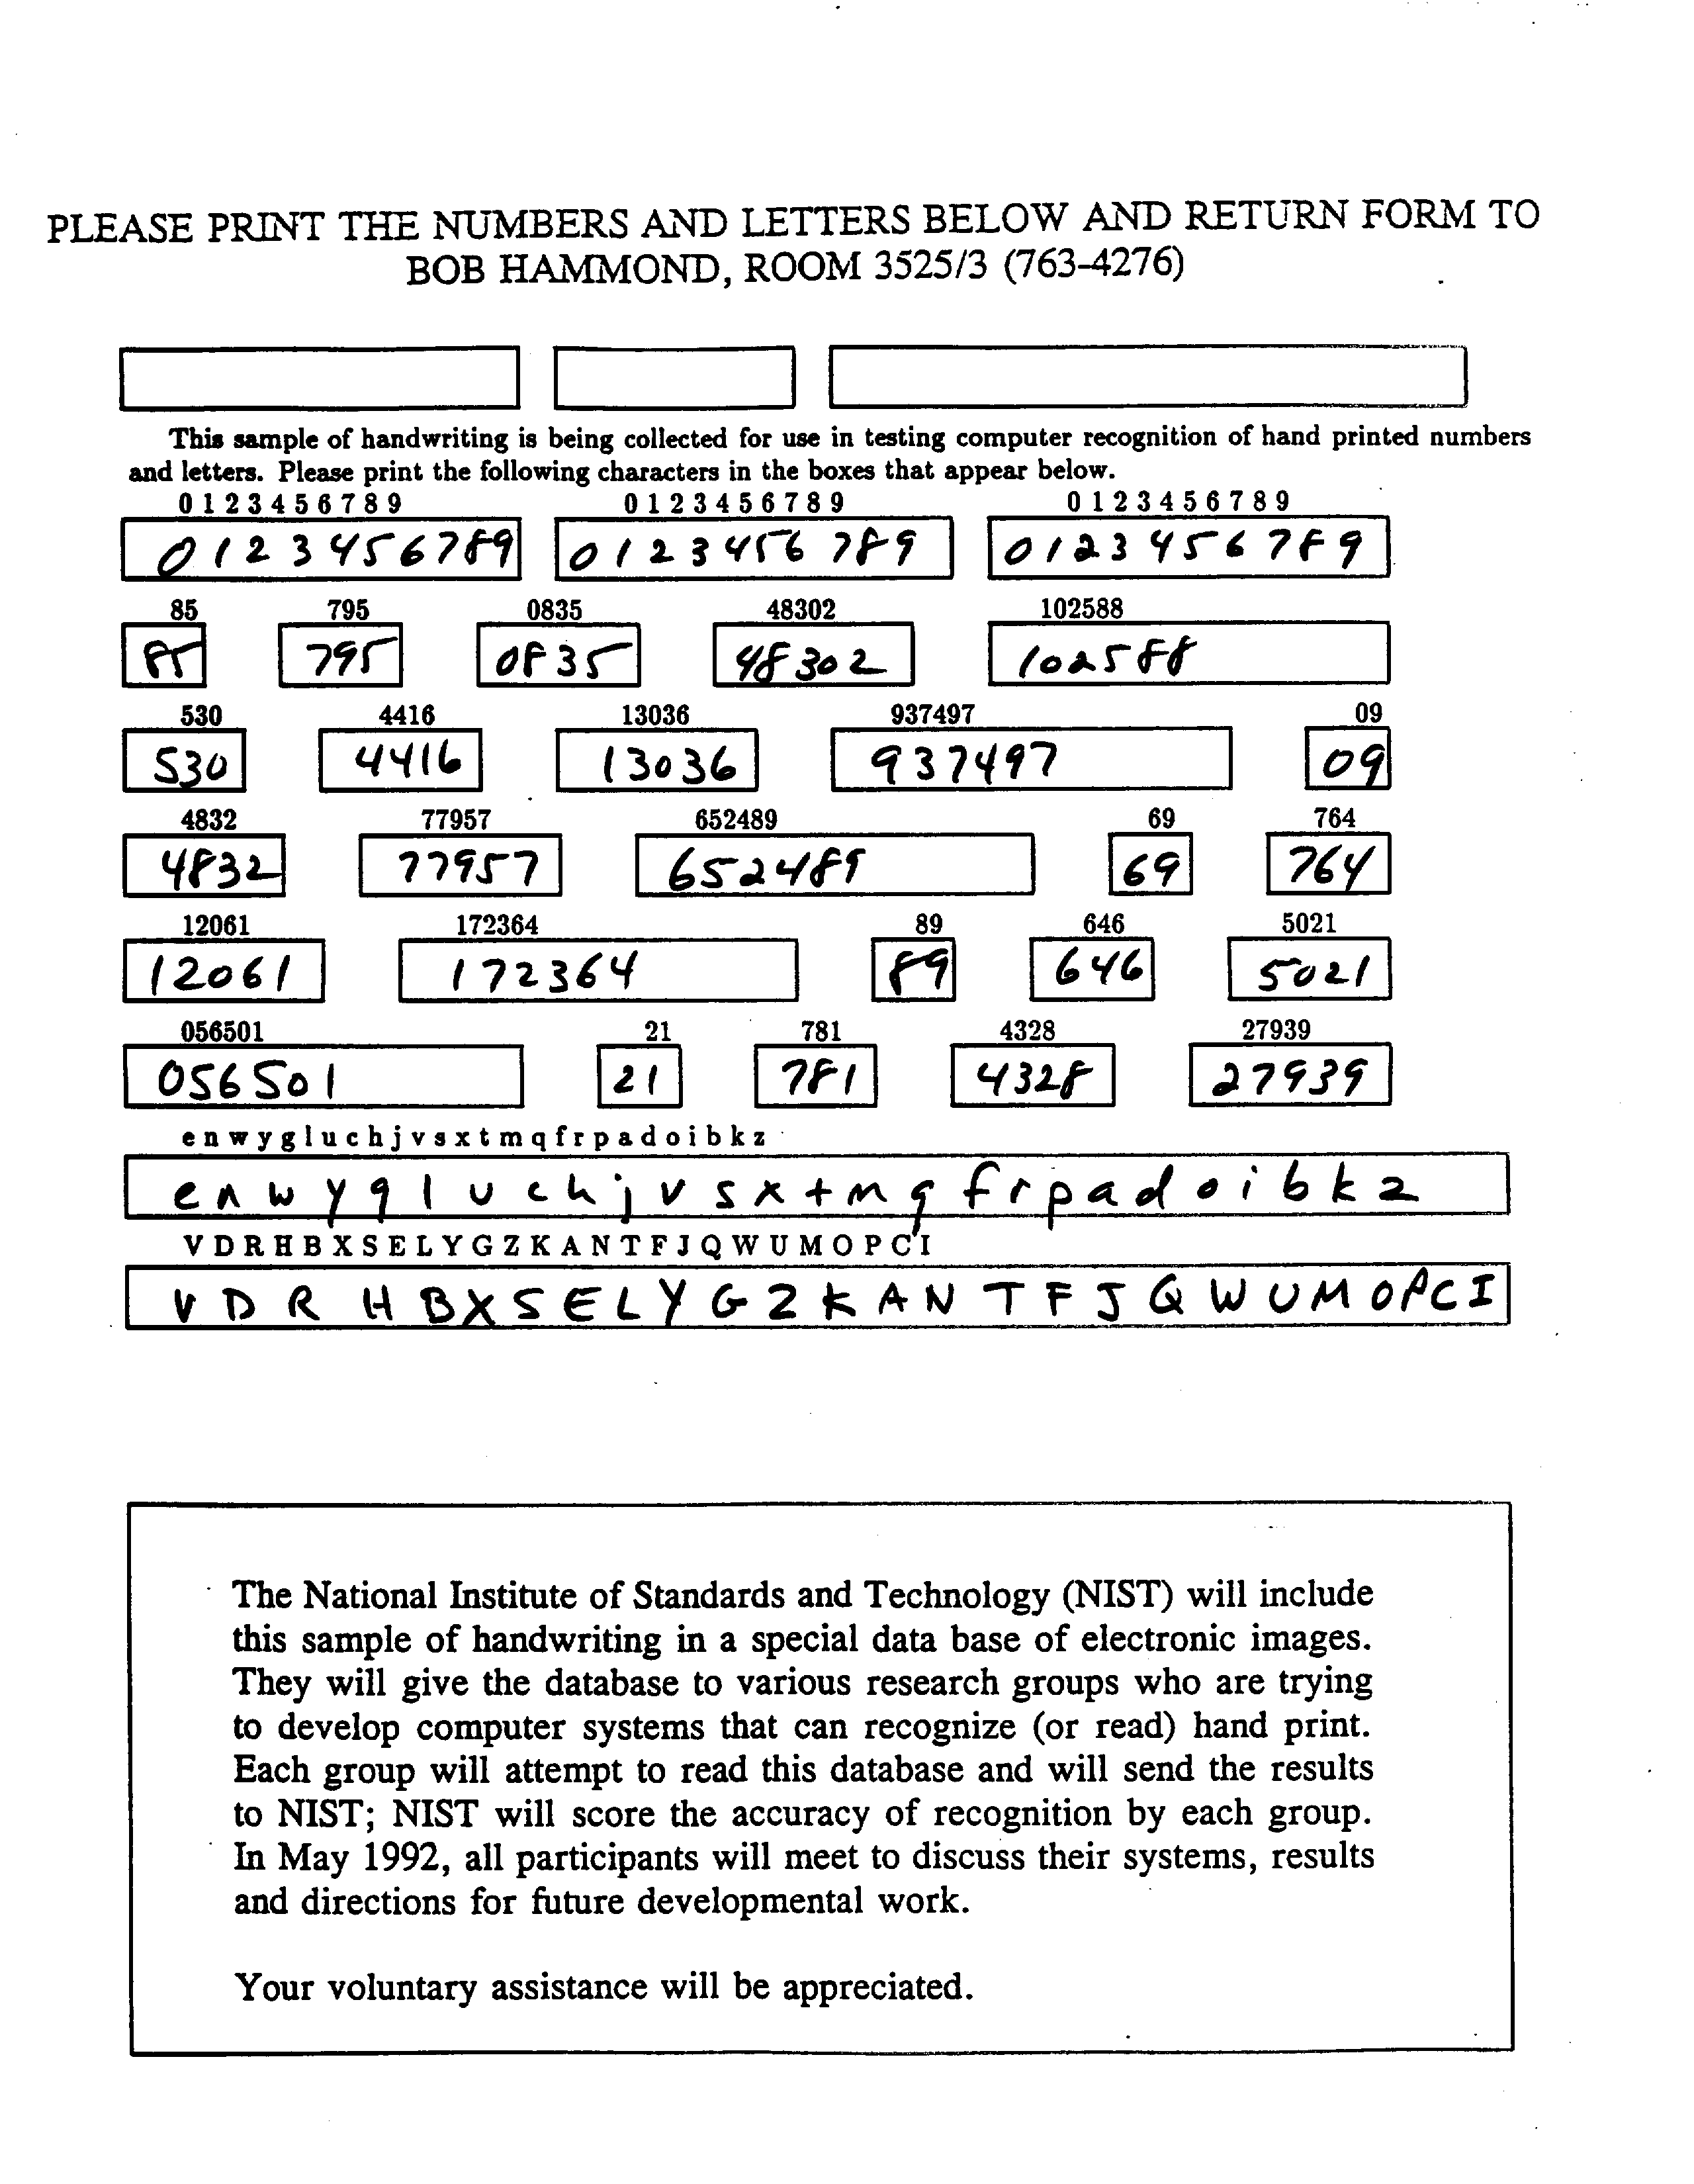 PLEASE PRINT THE NUMBERS AND LETTERS BELOW AND RETURN FORM TO
BOB HAMMOND, ROOM 3525/3 (763-4276)
This sample of handwriting is being collected for use in testing computer recognition of hand printed numbers
and letters. Please print the following characters in the boxes that appear below.
0 1 2 3 4 5 6 7 8 9 0 1 2 3 4 5 6 7 8 9 0 1 2 3 4 5 6 7 8 9
0123456789 0123456789 0123456789
85 795 0835 48302 102588
85 795 0835 48302 102588
530 4416 13036 937497 09
530 4416 13036 937497 09
4832 77957 652489 69 764
4832 77957 652489 69 764
12061 172364 89 646 5021
12061 172364 89 646 5021
056501 21 781 4328 27939
056501 21 781 4328 27939
e n w y g l u c h j v s x t m q f r p a d o i b k z
e n w y g l u c h j v s x t m q f r p a d o i b k z
V D R H B X S E L Y G Z K A N T F J Q W U M O P C I
V D R H B X S E L Y G Z K A N T F J Q W U M O P C I
The National Institute of Standards and Technology (NIST) will include
this sample of handwriting in a special data base of electronic images.
They will give the database to various research groups who are trying
to develop computer systems that can recognize (or read) hand print.
Each group will attempt to read this database and will send the results
to NIST; NIST will score the accuracy of recognition by each group.
In May 1992, all participants will meet to discuss their systems, results
and directions for future developmental work.
Your voluntary assistance will be appreciated.